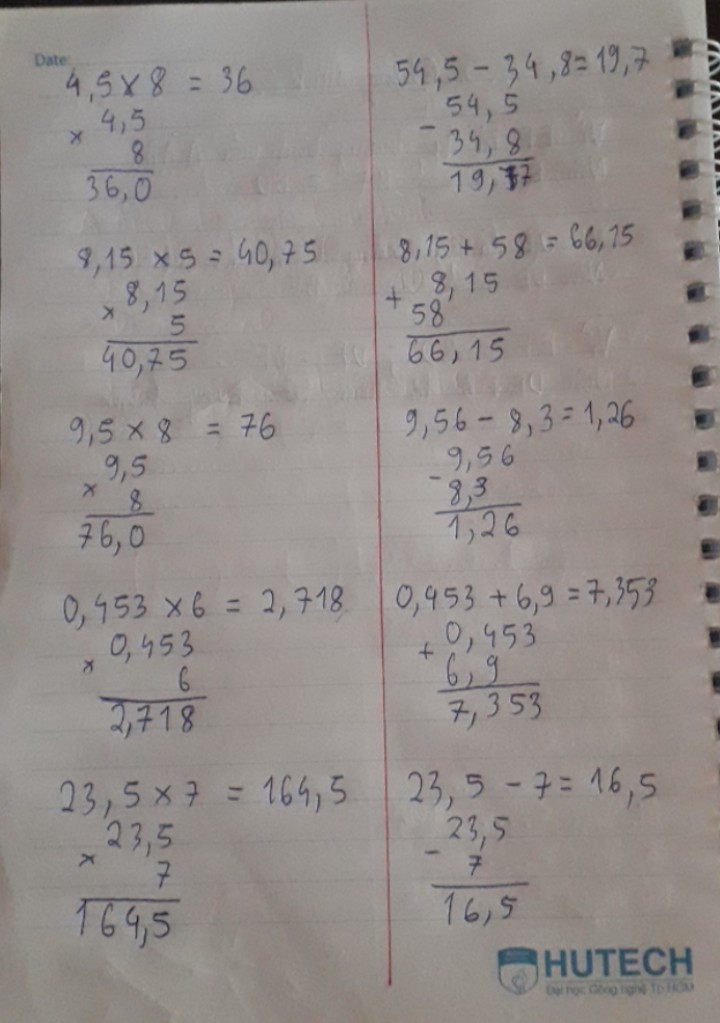 Date:
4,5 x 8 = 36
x 4,5
8
36,0
8,15 x 5 = 40,75
x 8,15
5
40,75
9,5 x 8 = 76
x 9,5
8
76,0
0,453 x 6 = 2,718
x 0,453
6
2,718
23,5 x 7 = 164,5
x 23,5
7
164,5
54,5 - 34,8 = 19,7
- 54,5
34,8
19,7
8,15 + 58 = 66,15
+ 8,15
58
66,15
9,56 - 8,3 = 1,26
- 9,56
8,3
1,26
0,453 + 6,9 = 7,353
+ 0,453
6,9
7,353
23,5 - 7 = 16,5
- 23,5
7
16,5
HUTECH
Đại học Công nghệ Tp.HCM